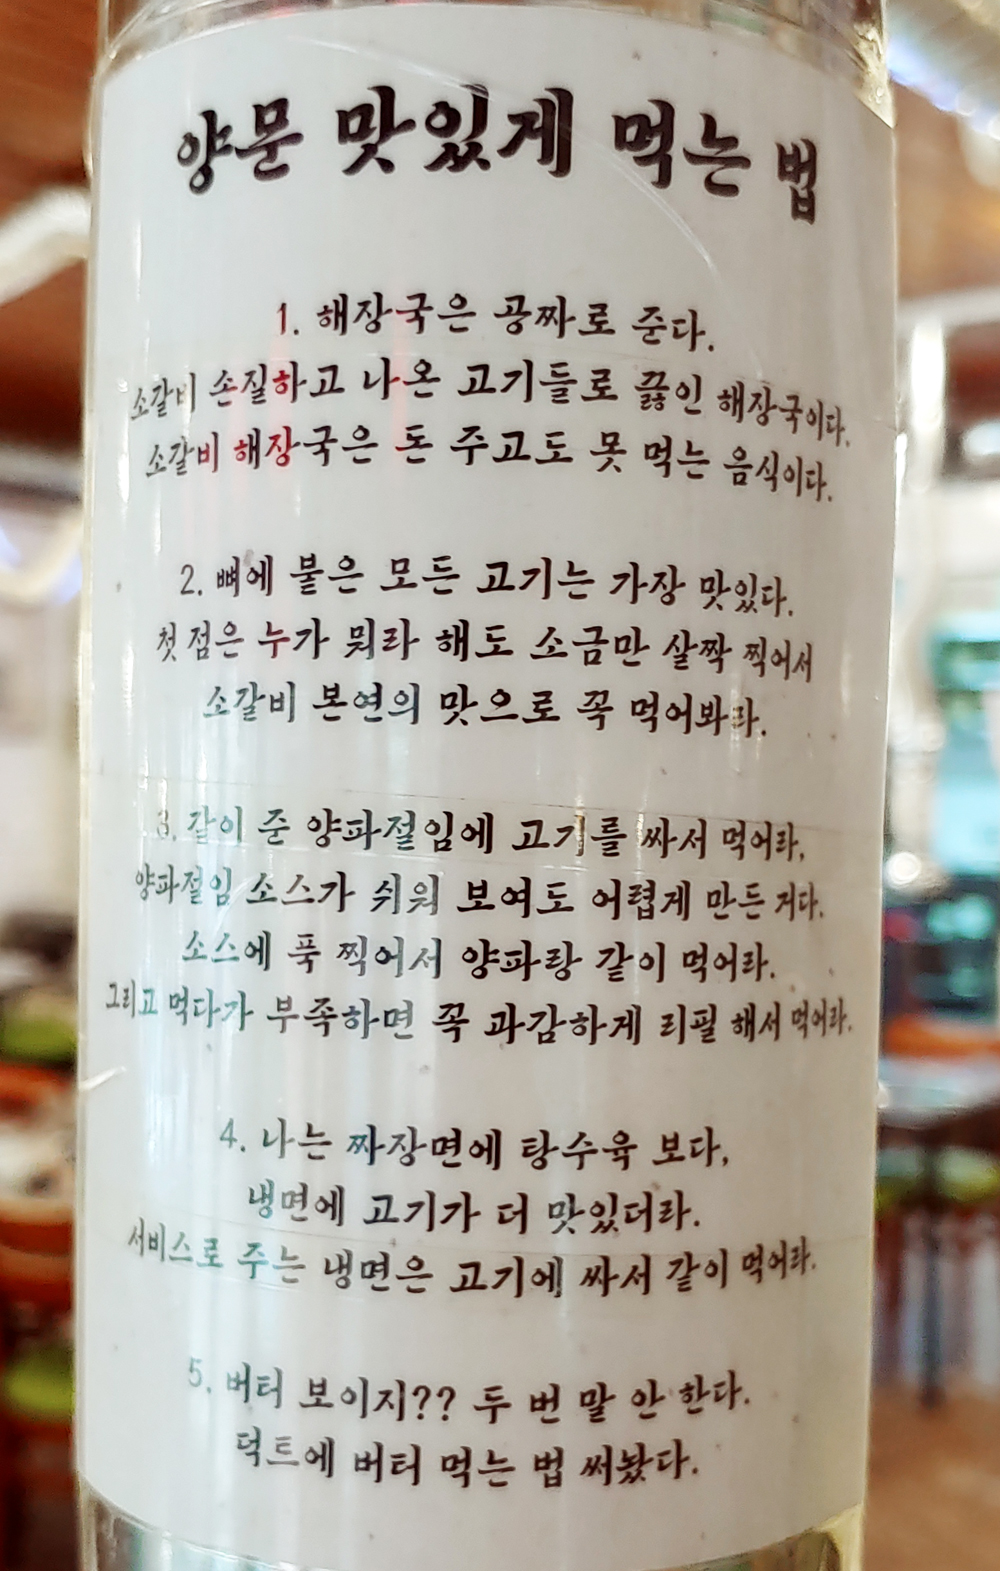 양문 맛있게 먹는 법
1. 해장국은 공짜로 준다.
소갈비 손질하고 나온 고기들로 끓인 해장국이다.
소갈비 해장국은 돈 주고도 못 먹는 음식이다.
2. 뼈에 붙은 모든 고기는 가장 맛있다.
첫 점은 누가 뭐라 해도 소금만 살짝 찍어서
소갈비 본연의 맛으로 꼭 먹어봐라.
3. 같이 준 양파절임에 고기를 싸서 먹어라,
양파절임 소스가 쉬워 보여도 어렵게 만든 거다.
소스에 푹 찍어서 양파랑 같이 먹어라.
그리고 먹다가 부족하면 꼭 과감하게 리필 해서 먹어라.
4. 나는 짜장면에 탕수육 보다,
냉면에 고기가 더 맛있더라.
서비스로 주는 냉면은 고기에 싸서 같이 먹어라.
5. 버터 보이지?? 두 번 말 안 한다.
덕트에 버터 먹는 법 써놨다.